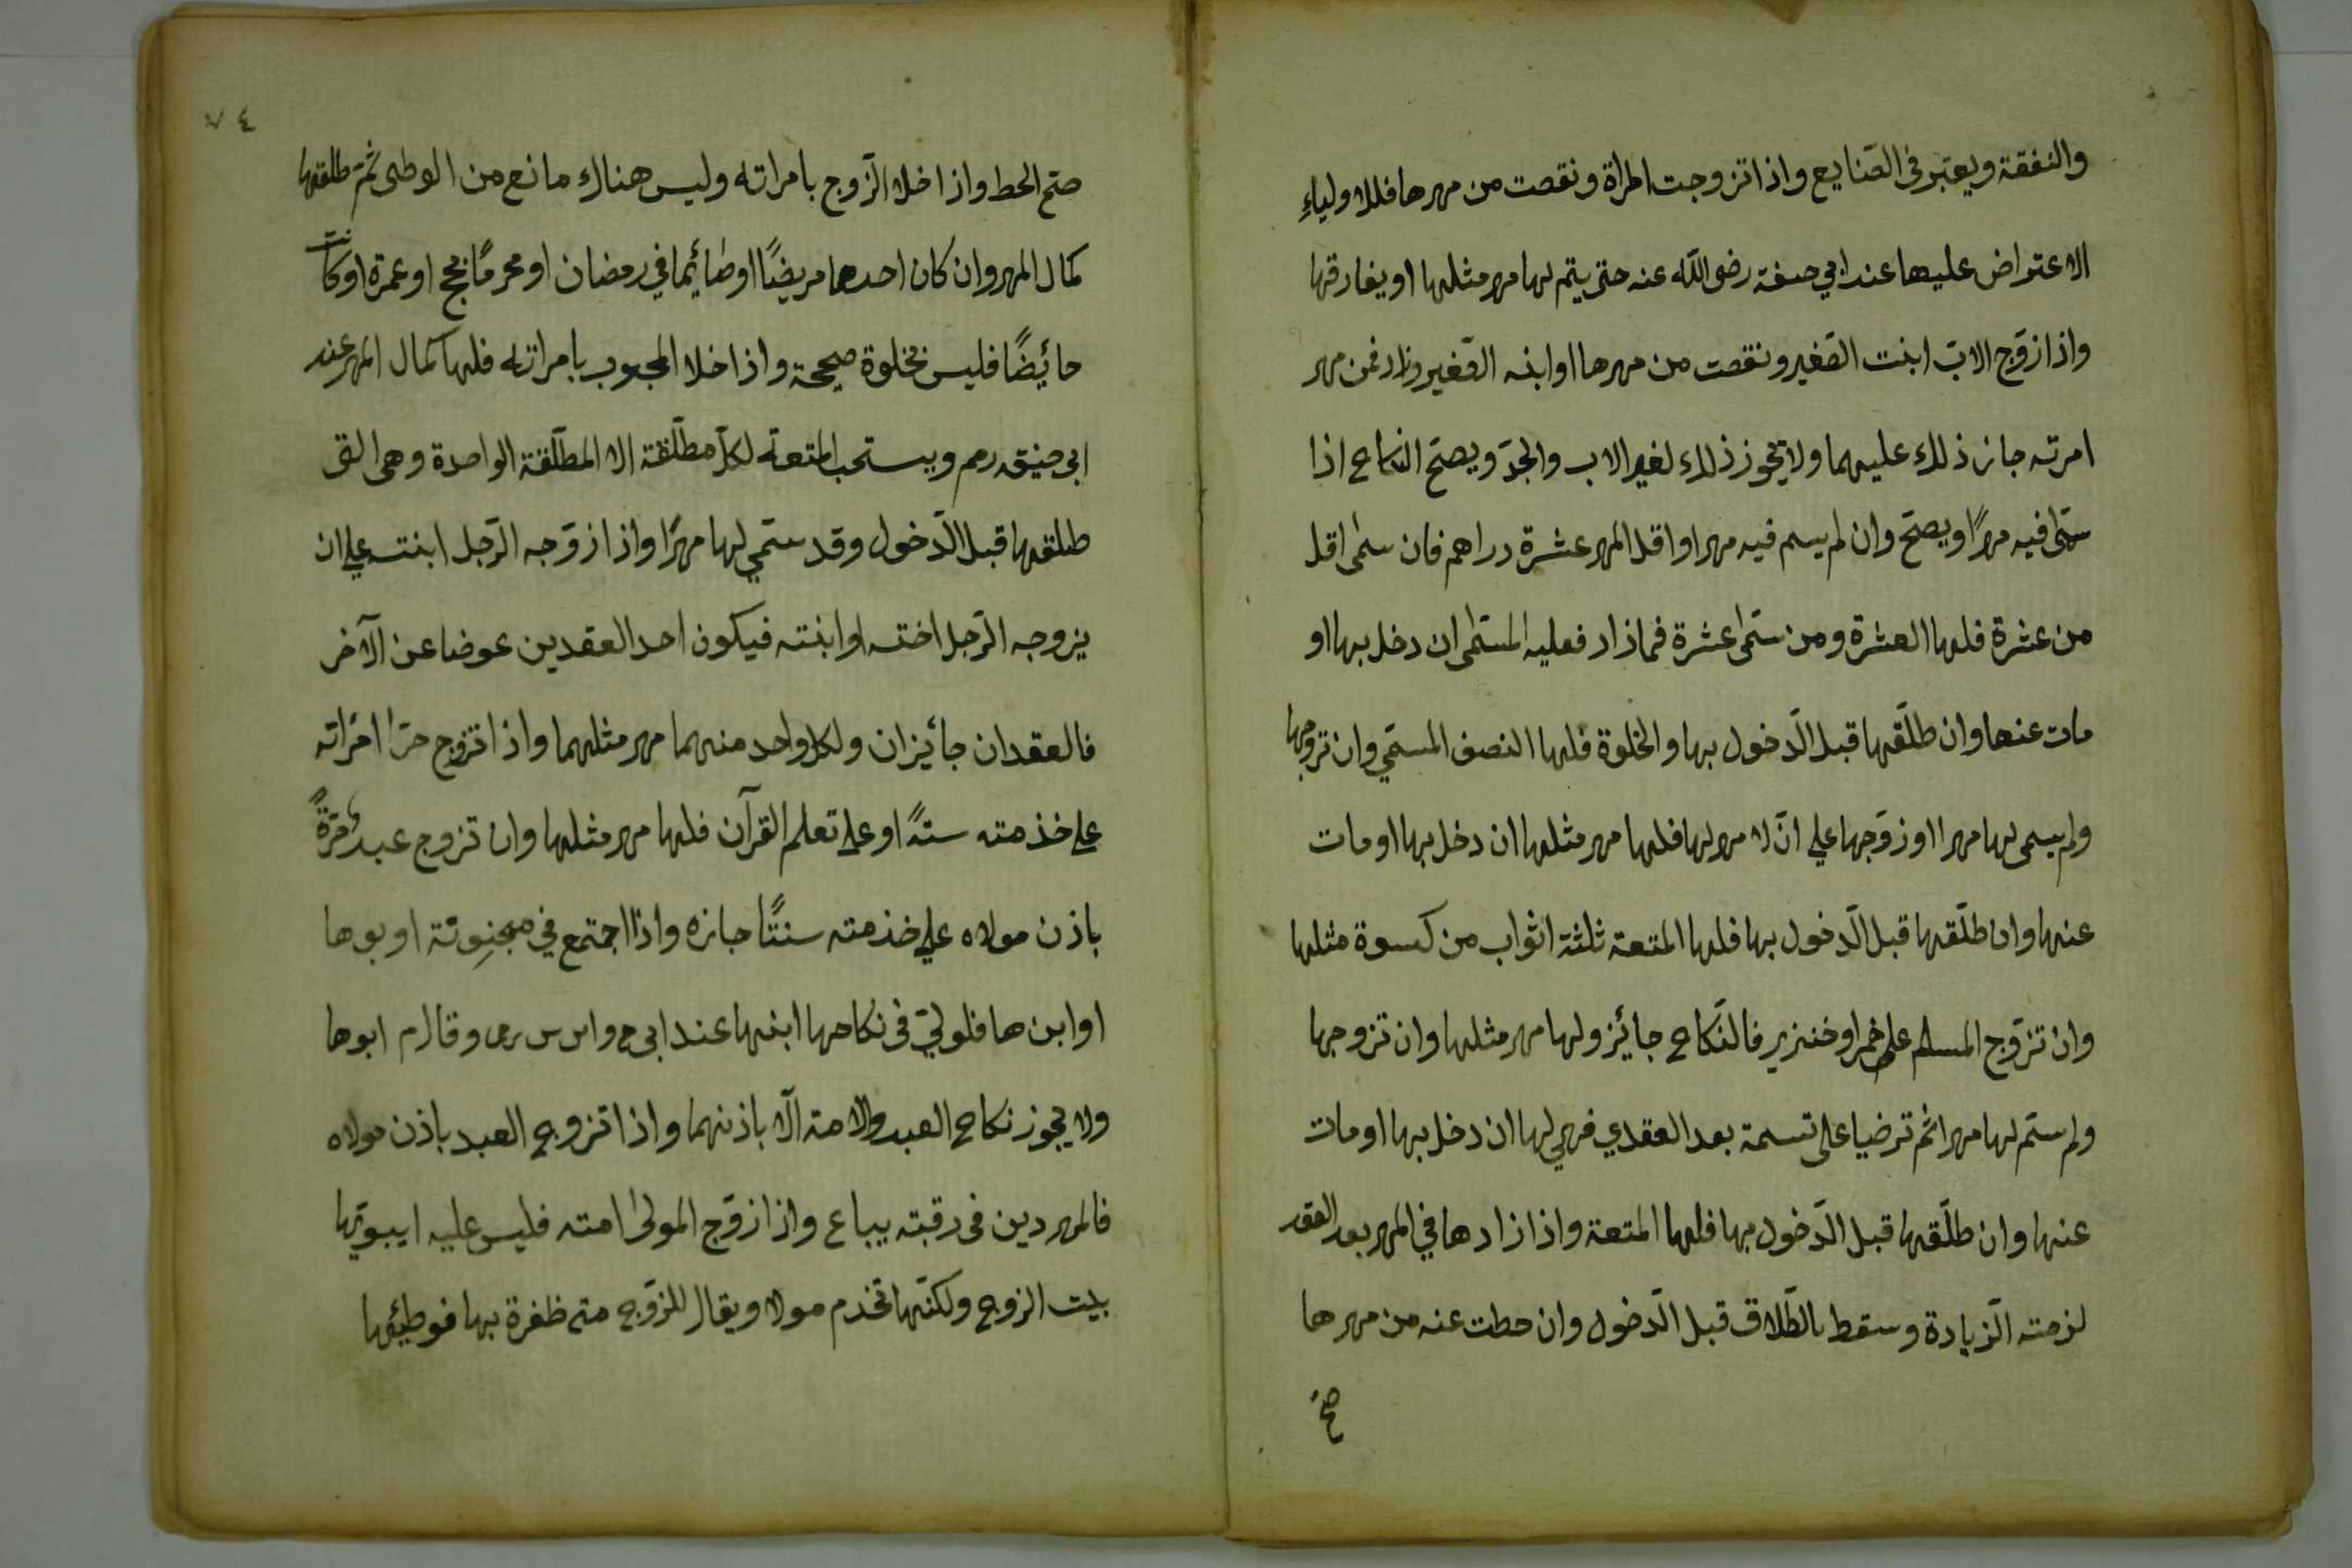 والنفقة ويعتبر في الصنايع واذا تزوجت المرأة ونقصت من مهرها فللاولياءِ
الاعتراض عليها عند ابي حنيفة رضى الله عنه حتى يتم لها مهر مثلها او يفارقها
واذا زوّج الابّ ابنت الصّغير ونقصت من مهرها او ابنه الصّغير وزاد فمن مهر
امرته جاز ذلك عليهما ولا يجوز ذلك لغير الاب والجدّ ويصحّ النكاح اذا
سمّى فيه مهرًا ويصحّ وان لم يسم فيه مهرا واقل المهر عشرة دراهم فان سمى اقل
من عشرة فلها العشرة ومن سمّى عشرة فمازاد فعليه المسمّى ان دخل بها او
مات عنها وان طلّقها قبل الدّخول بها والخلوة فلها النصف المسمّي وان تزوجها
ولم يسمى لها مهرا او زوّجها علي انّ لا مهر لها فلها مهر مثلها ان دخل بها او مات
عنها وان طلّقها قبل الدّخول بها فلها المتعة ثلثة اثواب من كسوة مثلها
وان تزوّج المسلم على خمر او خنزير فالنّكاح جائيز ولها مهر مثلها وان تزوجها
ولم ستم لها مهرا ثم ترضيا على تسمة بعد العقدي فهي لها ان دخل بها او مات
عنها وان طلّقها قبل الدّخول بها فلها المتعة واذا زادها في المهر بعد العقد
لزمته الزّيادة وسقط بالطّلاق قبل الدّخول وان حطت عنه من مهرها
صح
٧٤
صحّ الحط واذا خلا الزّوج بامراته وليس هناك مانع من الوطى ثمّ طلقها
كمال المهر وان كان احدهما مريضًا او صائيما في رمضان او محرمًا بحج او عمرة او كانت
حائيضًا فليس بخلوة صحيحة واذا خلا المجبوب بامراته فلها كمال المهر عند
ابى حنيفه رحم ويستحب المتعة لكلّ مطلّقة الا المطلّقة الواحدة وهى التى
طلقها قبل الدّخول وقد سمّي لها مهرًا واذا زوّجه الرّجل ابنته علي ان
يزوجه الرّجل اخته او ابنته فيكون احد العقدين عوضا عن الآخر
فالعقدان جائيزان ولكل واحد منهما مهر مثلهما واذا تزوج حرّا امراته
علي خذمته سنةً او علي تعلم القرآن فلها مهر مثلها وان تزوج عبد حرّةً
باذن مولاه علي خذمته سنتًا جازه واذا اجتمع في مجنِونة او بوها
او ابن ها فلوليّ فى نكاحها ابنها عند ابى ح وابى س رحمه وقال م ابوها
ولا يجوز نكاح العبد والامة الّا باذنهما واذا تزوج العبد باذن مولاه
فالمهر دين فى رقبته يباع واذا زوّج المولىٰ امته فليس عليه ايبوّيها
بيت الزوج ولكنّها تخذم مولا ويقال للزوّج متى ظفرة بها فوطيئها